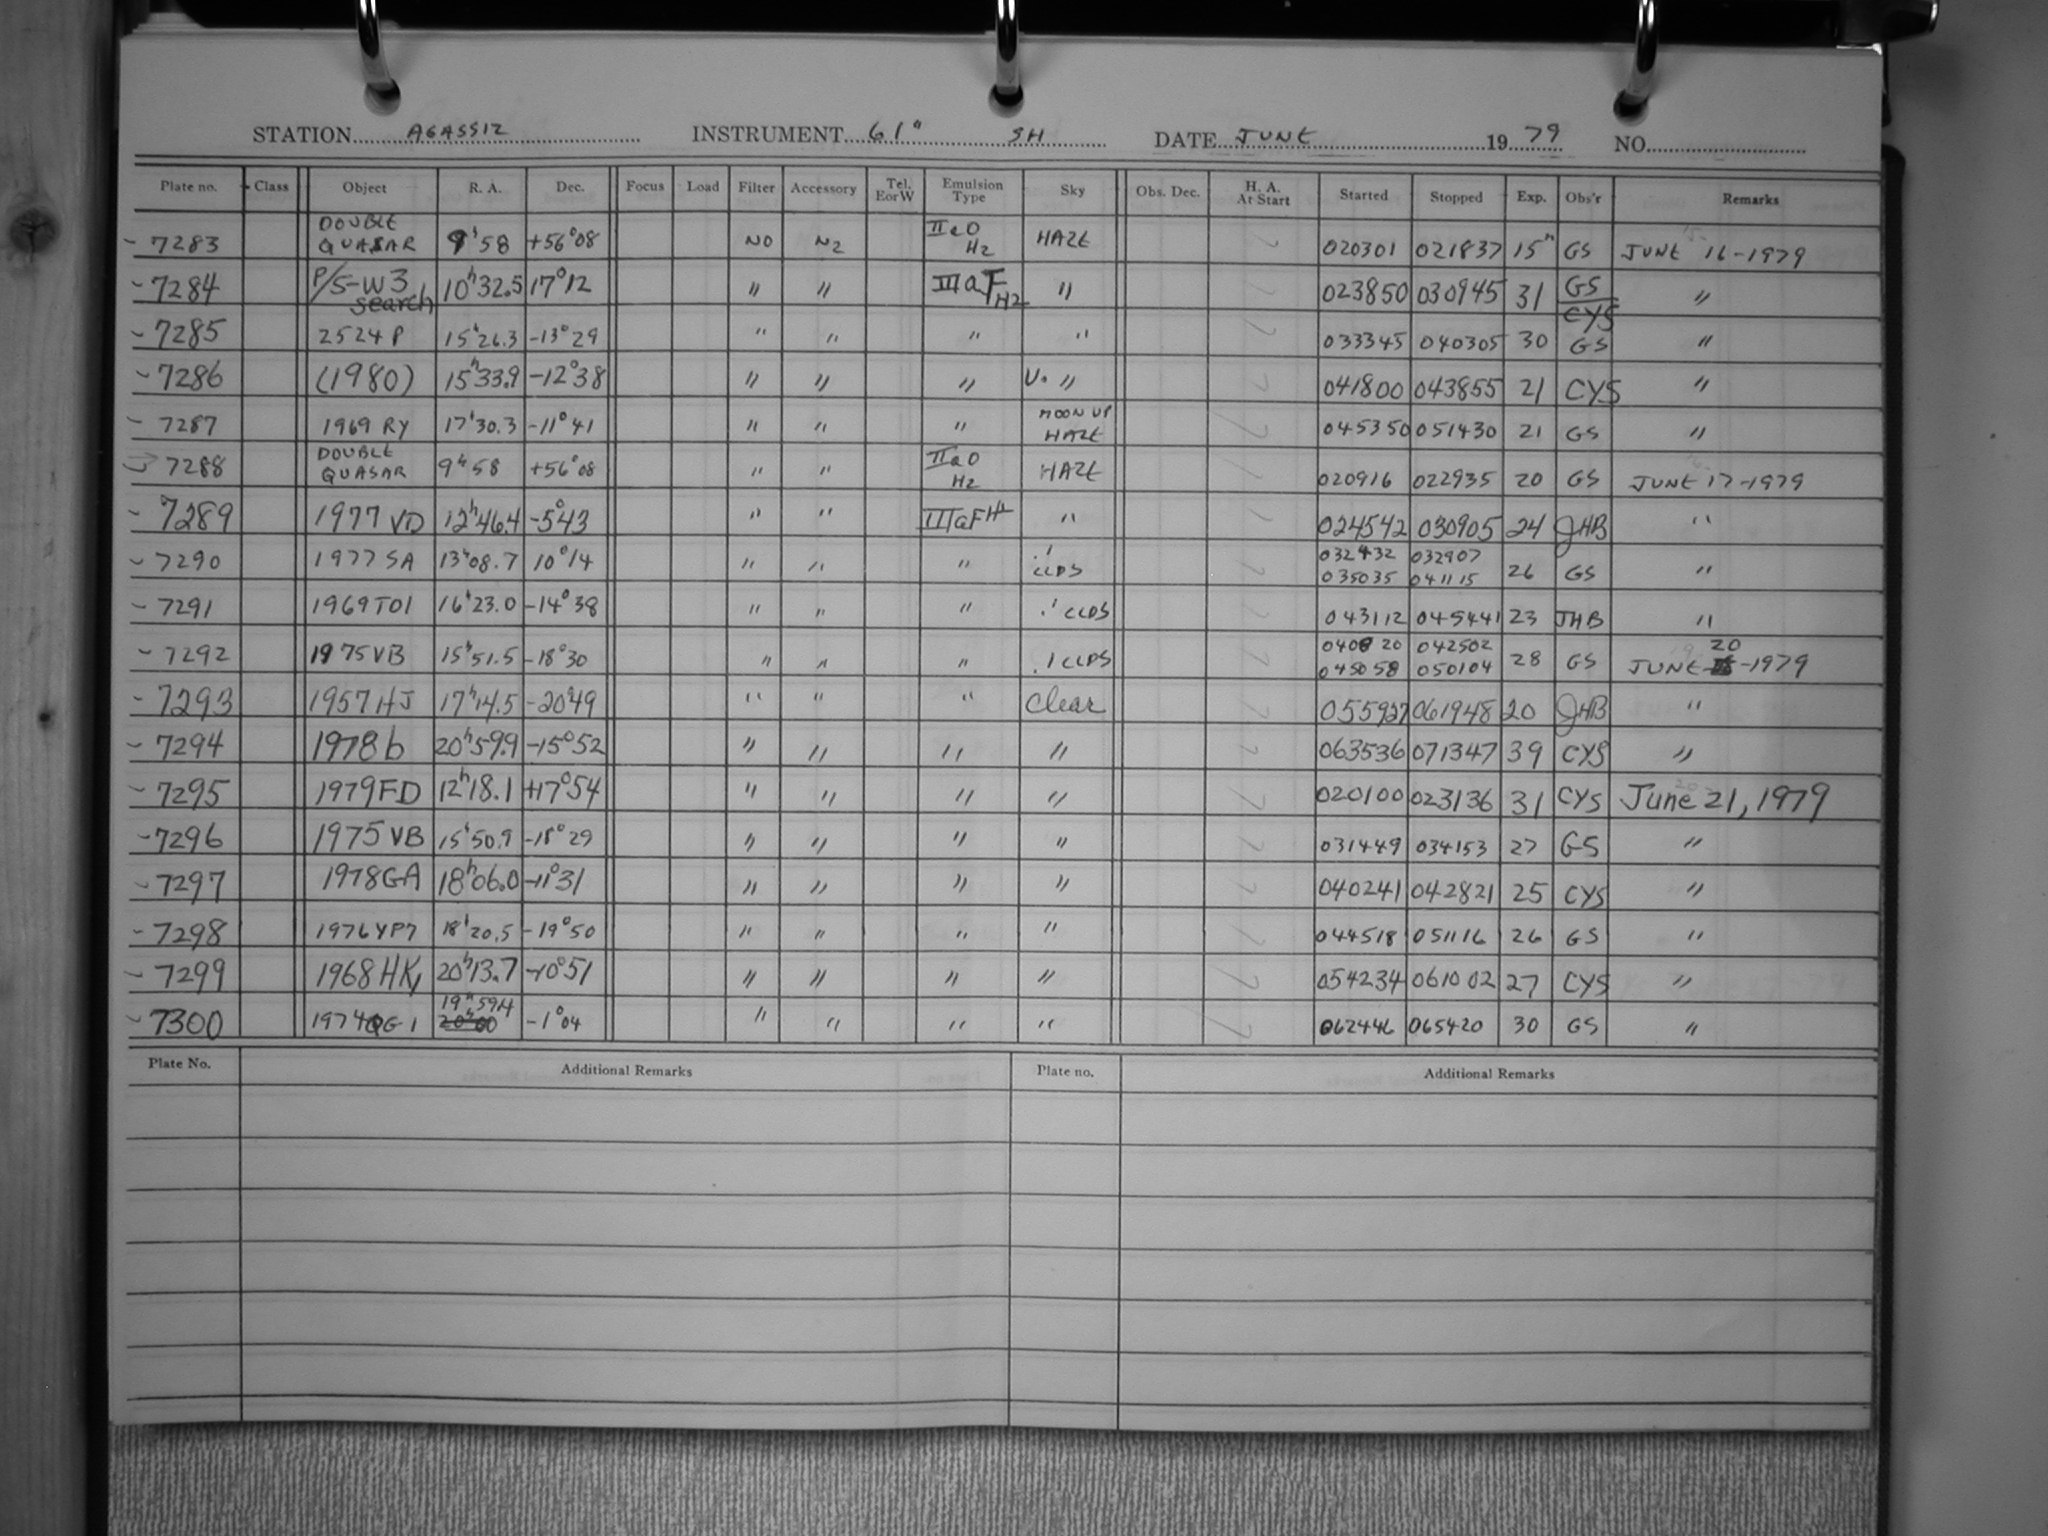 STATION AGASSIZ INSTRUMENT 61" SH DATE JUNE 1979 NO.
Plate no. Class Object R. A. Dec. Focus Load Filter Accessory Tel. EorW Emulsion Type Sky Obs. Dec. H. A. At Start Started Stopped Exp. Obs'r Remarks
7283 DOUBLE QUASAR 9h58 +56°08 NO N2 IIaO H2 HAZE 020301 021837 15m GS JUNE 16-1979
7284 P/S-W3 search 10h32.5 17°12 " " IIIaF H2 " 023850 030945 31 GS/CYS "
7285 2524 P 15h26.3 -13°29 " " " " 033345 040305 30 GS "
7286 (1980) 15h33.9 -12°38 " " " V. " 041800 043855 21 CYS "
7287 1969 RY 17h30.3 -11°41 " " " MOON UP HAZE 045350 051430 21 GS "
7288 DOUBLE QUASAR 9h58 +56°08 " " IIaO H2 HAZE 020916 022935 20 GS JUNE 17-1979
7289 1977 VD 12h46.4 -5°43 " " IIIaF H2 " 024542 030905 24 JHB "
7290 1977 SA 13h08.7 10°14 " " " .1 CLDS 032432 032907 035035 041115 26 GS "
7291 1969TO1 16h23.0 -14°38 " " " .1 CLDS 043112 045441 23 JHB "
7292 1975VB 15h51.5 -18°30 " " " .1 CLDS 040820 042502 045058 050104 28 GS JUNE 20-1979
7293 1957 HJ 17h14.5 -20°49 " " " Clear 055927 061948 20 JHB "
7294 1978b 20h59.9 -15°52 " " " " 063536 071347 39 CYS "
7295 1979FD 12h18.1 +17°54 " " " " 020100 023136 31 CYS June 21, 1979
7296 1975 VB 15h50.9 -18°29 " " " " 031449 034153 27 GS "
7297 1978GA 18h06.0 -11°31 " " " " 040241 042821 25 CYS "
7298 1976YP7 18h20.5 -19°50 " " " " 044518 051116 26 GS "
7299 1968 HK1 20h13.7 -10°51 " " " " 054234 061002 27 CYS "
7300 1974QG1 19h59.4 -1°04 " " " " 062446 065420 30 GS "
Plate No. Additional Remarks Plate no. Additional Remarks